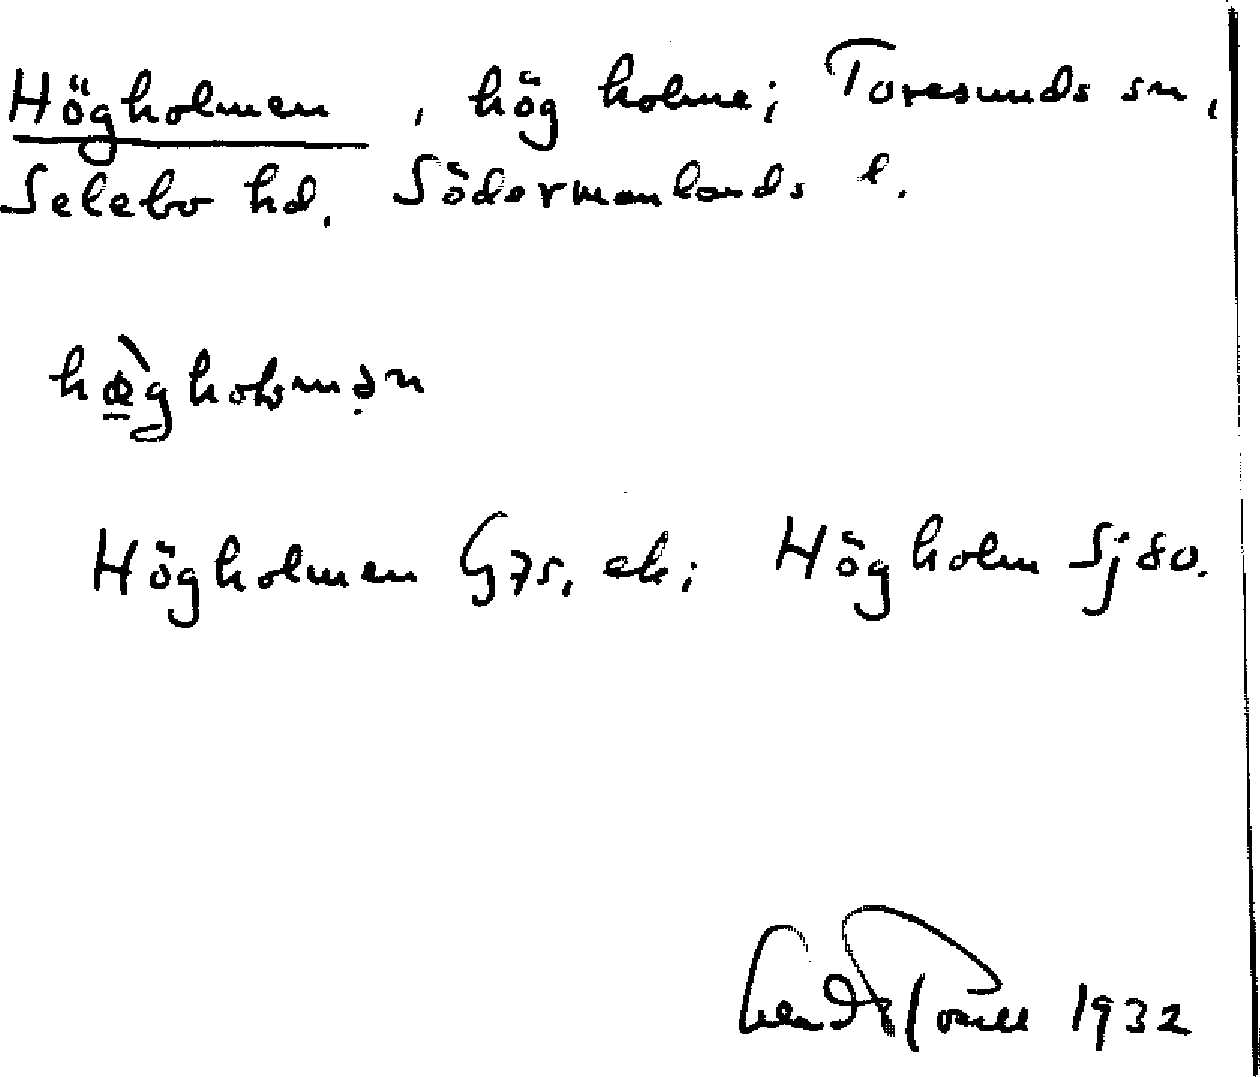 Högholmen, hög holme; Toresunds sn,
Selebo hd. Södermanlands l.
Högholmen G75, ek; Högholm Sj80.
1932